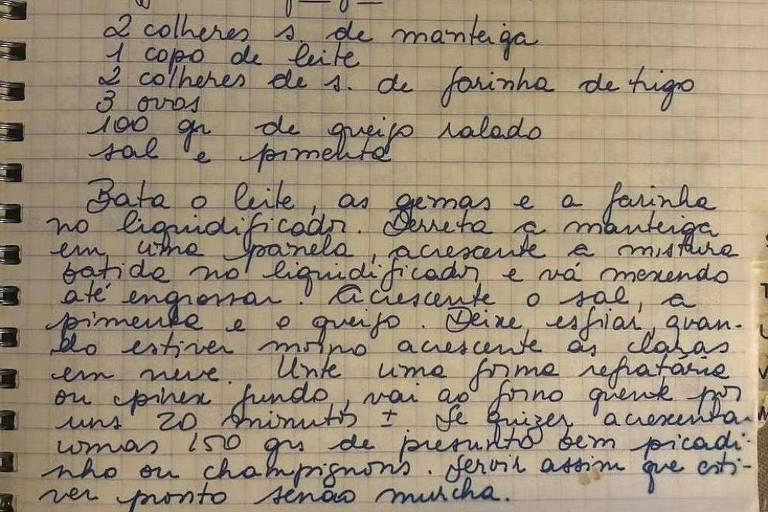 2 colheres s. de manteiga
1 copo de leite
2 colheres de s. de farinha de trigo
3 ovos
100 gr de queijo ralado
sal e pimenta
Bata o leite, as gemas e a farinha
no liquidificador. Derreta a manteiga
em uma panela, acrescente a mistura
batida no liquidificador e vá mexendo
até engrossar. Acrescente o sal, a
pimenta e o queijo. Deixe esfriar, quan-
do estiver morno acrescente as claras
em neve. Unte uma forma refratária
ou pirex fundo, vai ao forno quente por
uns 20 minutos ± Se quizer acrescenta
umas 150 grs de presunto bem picadi-
nho ou champignons. Servir assim que esti-
ver pronto senão murcha.